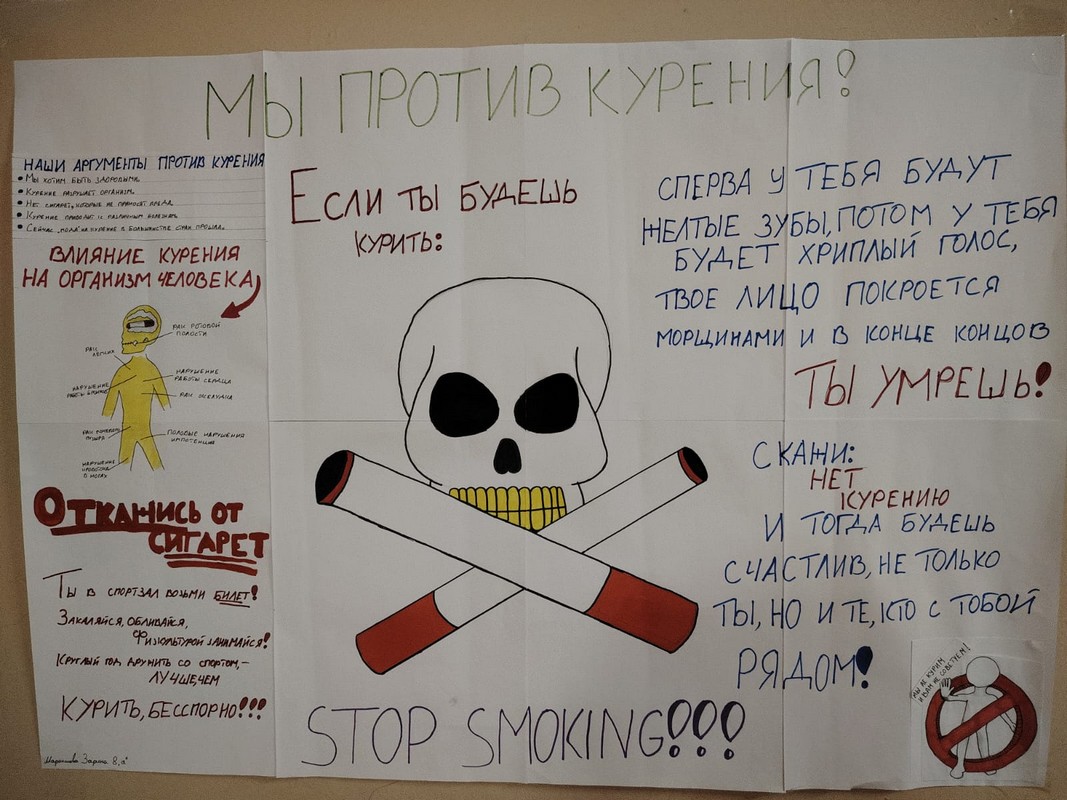 МЫ ПРОТИВ КУРЕНИЯ!
НАШИ АРГУМЕНТЫ ПРОТИВ КУРЕНИЯ
• Мы хотим быть здоровыми.
• Курение разрушает организм.
• Нет сигарет, которые не приносят вреда.
• Курение приводит к различным болезням.
• Сейчас "мода" на курение в большинстве стран прошла.
ВЛИЯНИЕ КУРЕНИЯ
НА ОРГАНИЗМ ЧЕЛОВЕКА
РАК РОТОВОЙ
ПОЛОСТИ
РАК
НАРУШЕНИЕ
РАБОТЫ СЕРДЦА
НАРУШЕНИЕ
РАК ЖЕЛУДКА
РАК МОЧЕВОГО
ПУЗЫРЯ
ПОЛОВЫЕ НАРУШЕНИЯ
ИМПОТЕНЦИЯ
НАРУШЕНИЕ
КРОВОТОКА
В НОГАХ
ОТКАЖИСЬ ОТ
СИГАРЕТ
Ты в спортзал возьми билет!
Закаляйся, обливайся,
Физкультурой занимайся!
Круглый год дружить со спортом,–
ЛУЧШЕ, ЧЕМ
КУРИТЬ, БЕССПОРНО!!!
ЕСЛИ ТЫ БУДЕШЬ
КУРИТЬ:
СПЕРВА У ТЕБЯ БУДУТ
ЖЕЛТЫЕ ЗУБЫ, ПОТОМ У ТЕБЯ
БУДЕТ ХРИПЛЫЙ ГОЛОС,
ТВОЕ ЛИЦО ПОКРОЕТСЯ
МОРЩИНАМИ И В КОНЦЕ КОНЦОВ
ТЫ УМРЕШЬ!
СКАЖИ:
НЕТ
КУРЕНИЮ
И ТОГДА БУДЕШЬ
СЧАСТЛИВ, НЕ ТОЛЬКО
ТЫ, НО И ТЕ, КТО С ТОБОЙ
РЯДОМ!
МЫ НЕ КУРИМ
И ВАМ НЕ СОВЕТУЕМ!
STOP SMOKING!!!